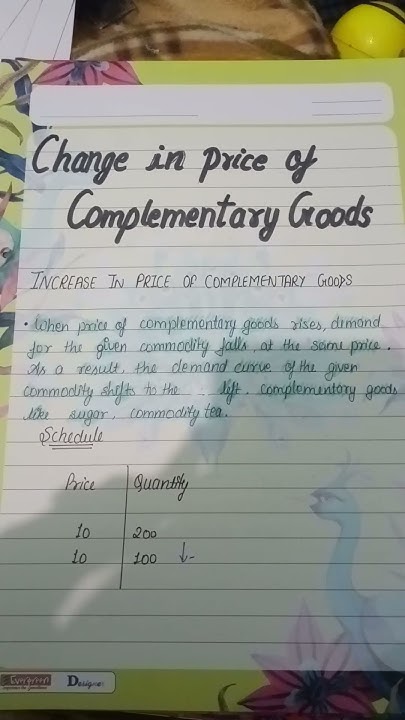 Change in price of
Complementary Goods
INCREASE IN PRICE OF COMPLEMENTARY GOODS
• When price of complementary goods rises, demand
for the given commodity falls, at the same price.
As a result, the demand curve of the given
commodity shifts to the left. complementary goods
like sugar, commodity tea.
Schedule
Price Quantity
10 200
10 100 ↓-
Evergreen
Designer